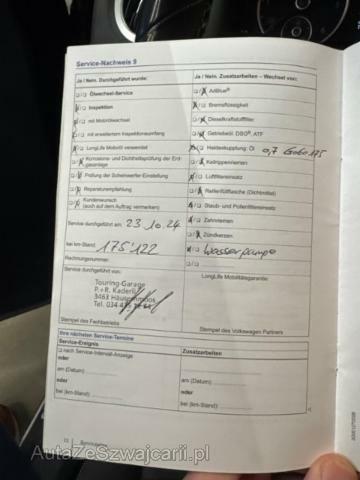 Service-Nachweis 9
Ja / Nein. Durchgeführt wurde:
Ölwechsel-Service
Inspektion
mit Motorölwechsel
mit erweitertem Inspektionsumfang
LongLife Motoröl verwendet
Korrosions- und Dichtheitsprüfung der Erd-
gasanlage
Prüfung der Scheinwerfer-Einstellung
Reparaturempfehlung
Kundenwunsch
(auch auf dem Auftrag vermerken)
Service durchgeführt am: 23.10.24
bei km-Stand: 175'122
Rechnungsnummer:
Service durchgeführt von:
Touring-Garage
P.+R. Kaderli
3463 Häusernmoos
Tel. 034
Stempel des Fachbetriebs
Ja / Nein. Zusatzarbeiten – Wechsel von:
AdBlue®
Bremsflüssigkeit
Dieselkraftstofffilter
Getriebeöl: DSG®, ATF
Haldexkupplung: Öl 0,7
Keilrippenriemen
Luftfiltereinsatz
Reifenfüllflasche (Dichtmittel)
Staub- und Pollenfiltereinsatz
Zahnriemen
Zündkerzen
Wasserpumpe
LongLife Mobilitätsgarantie:
Stempel des Volkswagen Partners
Ihre nächsten Service-Termine
Service-Ereignis
nach Service-Intervall-Anzeige
oder
am (Datum)
oder
bei (km-Stand):
Zusatzarbeiten
am (Datum)
oder
bei (km-Stand):
AutaZeSzwajcarii.pl